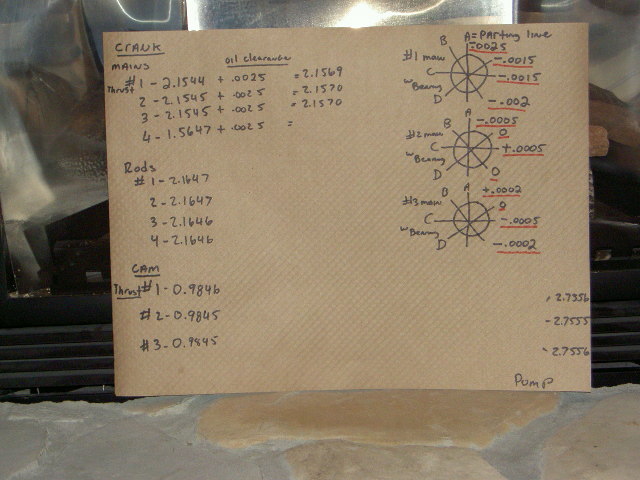 CRANK
MAINS oil clearance
#1 - 2.1544 + .0025 = 2.1569
Thrust
2 - 2.1545 + .0025 = 2.1570
3 - 2.1545 + .0025 = 2.1570
4 - 1.5647 + .0025 =
Rods
#1 - 2.1647
2 - 2.1647
3 - 2.1646
4 - 2.1646
CAM
Thrust #1 - 0.9846
#2 - 0.9845
#3 - 0.9845
A = PArting line
B -.0025
#1 main -.0015
C -.0015
w Bearing
D -.002
A -.0005
B 0
#2 main
C +.0005
w Bearing
D 0
A +.0002
B 0
#3 main
C -.0005
w Bearing
D -.0002
- 2.7556
- 2.7555
- 2.7556
Pump